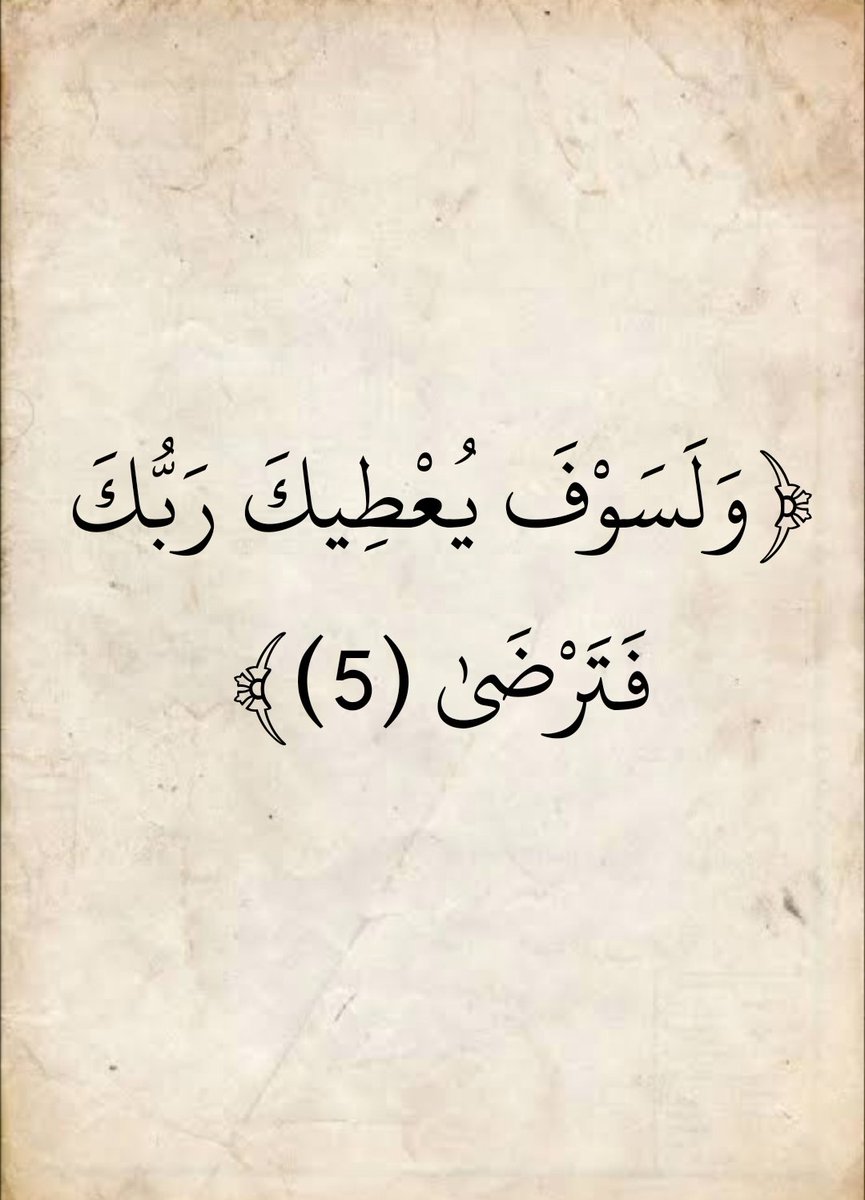 ﴿وَلَسَوْفَ يُعْطِيكَ رَبُّكَ
فَتَرْضَىٰ (5)﴾